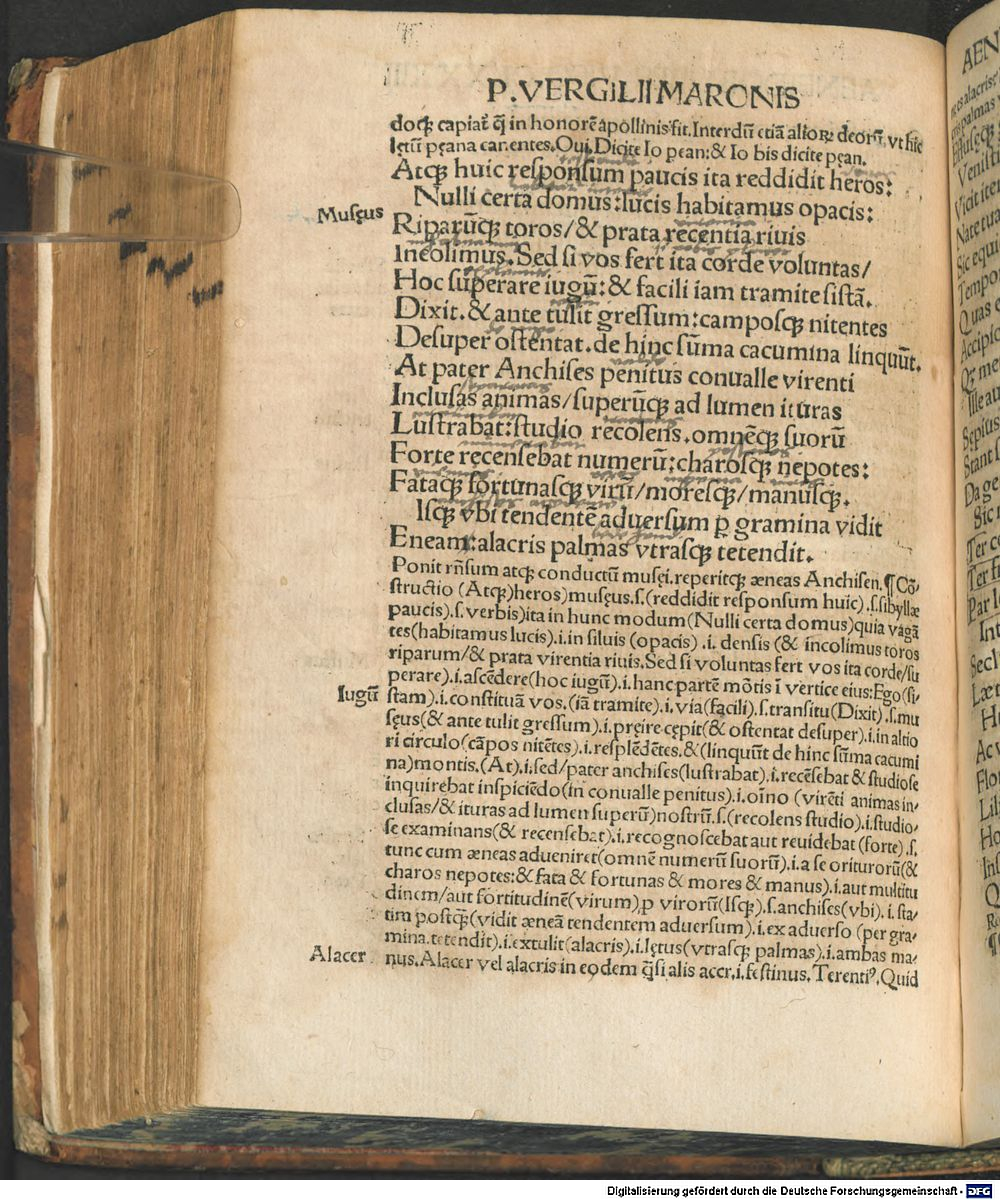 P.VERGILII MARONIS
docꝫ capiat̃ q̃ in honorẽ apollinis fit. Interdũ etiã alioꝝ deorũ. vt hic
lętũ pęana canentes. Oui. Dicite Io pean: & Io bis dicite pęan.
Atqꝫ huic responsum paucis ita reddidit heros:
Nulli certa domus: lucis habitamus opacis:
Musęus
Riparũqꝫ toros/& prata recentia riuis
Incolimus. Sed si vos fert ita corde voluntas/
Hoc superare iugũ: & facili iam tramite sistã.
Dixit. & ante tulit gressum: camposqꝫ nitentes
Desuper ostentat. de hinc sũma cacumina linquũt.
At pater Anchises penitus conualle virenti
Inclusas animas/superũqꝫ ad lumen ituras
Lustrabat: studio recolens. omnẽqꝫ suorũ
Forte recensebat numerũ: charosqꝫ nepotes:
Fataqꝫ fortunasqꝫ virũ/moresqꝫ/manusqꝫ.
Isqꝫ vbi tendentẽ aduersum ꝑ gramina vidit
Eneam: alacris palmas vtrasqꝫ tetendit.
Ponit rñsum atqꝫ conductũ musęi. reperitqꝫ æneas Anchisen. ¶Cõ-
structio (Atqꝫ)heros)musęus. s. (reddidit responsum huic). s. sibyllæ
paucis). s. verbis)ita in hunc modum(Nulli certa domus)quia vagã
tes(habitamus lucis). i. in siluis (opacis) .i. densis (& incolimus toros
riparum/& prata virentia riuis. Sed si voluntas fert vos ita corde/su
perare). i. ascẽdere(hoc iugũ). i. hanc partẽ mõtis ĩ vertice eius: Ego(si-
Iugũ
stam). i. constituã vos. (iã tramite). i. via(facili). s. transitu(Dixit). s. mu
sęus(& ante tulit gressum). i. preire cępit(& ostentat desuper). i. in altio
ri circulo(cãpos nitẽtes). i. resplẽdẽtes. &(linquũt de hinc sũma cacumi
na)montis. (At). i. sed/pater anchises(lustrabat). i. recẽsebat & studiose
inquirebat inspiciẽdo(in conualle penitus). i. oĩno (virẽti animas in-
clusas/& ituras ad lumen superũ)nostrũ. s. (recolens studio). i. studio-
se examinans(& recensebat). i. recognoscebat aut reuidebat (forte). s.
tunc cum æneas adueniret(omnẽ numerũ suorũ). i. a se oriturorũ(&
charos nepotes: & fata & fortunas & mores & manus). i. aut multitu
dinem/aut fortitudinẽ(virum). ꝑ virorũ(Isqꝫ). s. anchises(vbi). i. sta-
tim postqꝫ(vidit æneã tendentem aduersum). i. ex aduerso (per gra-
mina. tetendit). i. extulit(alacris). i. lętus(vtrasqꝫ palmas). i. ambas ma-
Alacer
nus. Alacer vel alacris in eodem q̃si alis acer. i. festinus. Terentiꝰ. Quid
Digitalisierung gefördert durch die Deutsche Forschungsgemeinschaft - DFG